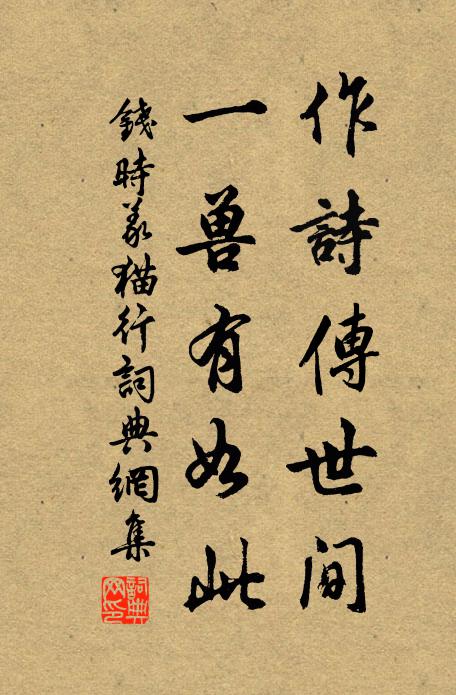 作詩傳世間
一兽有如此
錢時義猫行詞典網集
詞典网印